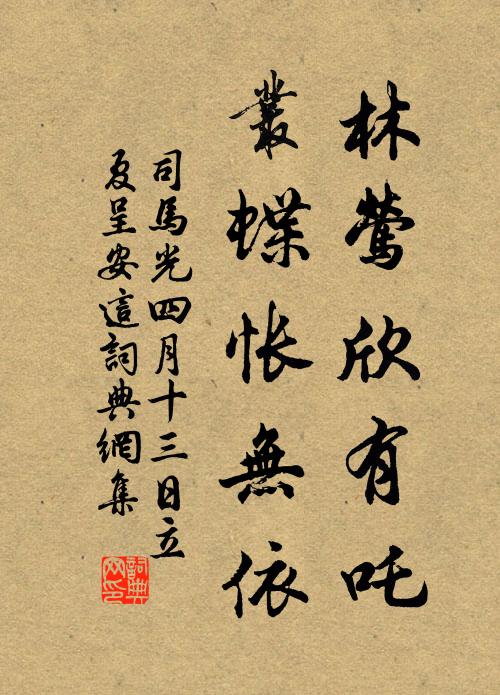 林鶯欣有吒
叢蝶悵無依
司馬光四月十三日立
夏呈安這詞典網集
詞典
网印